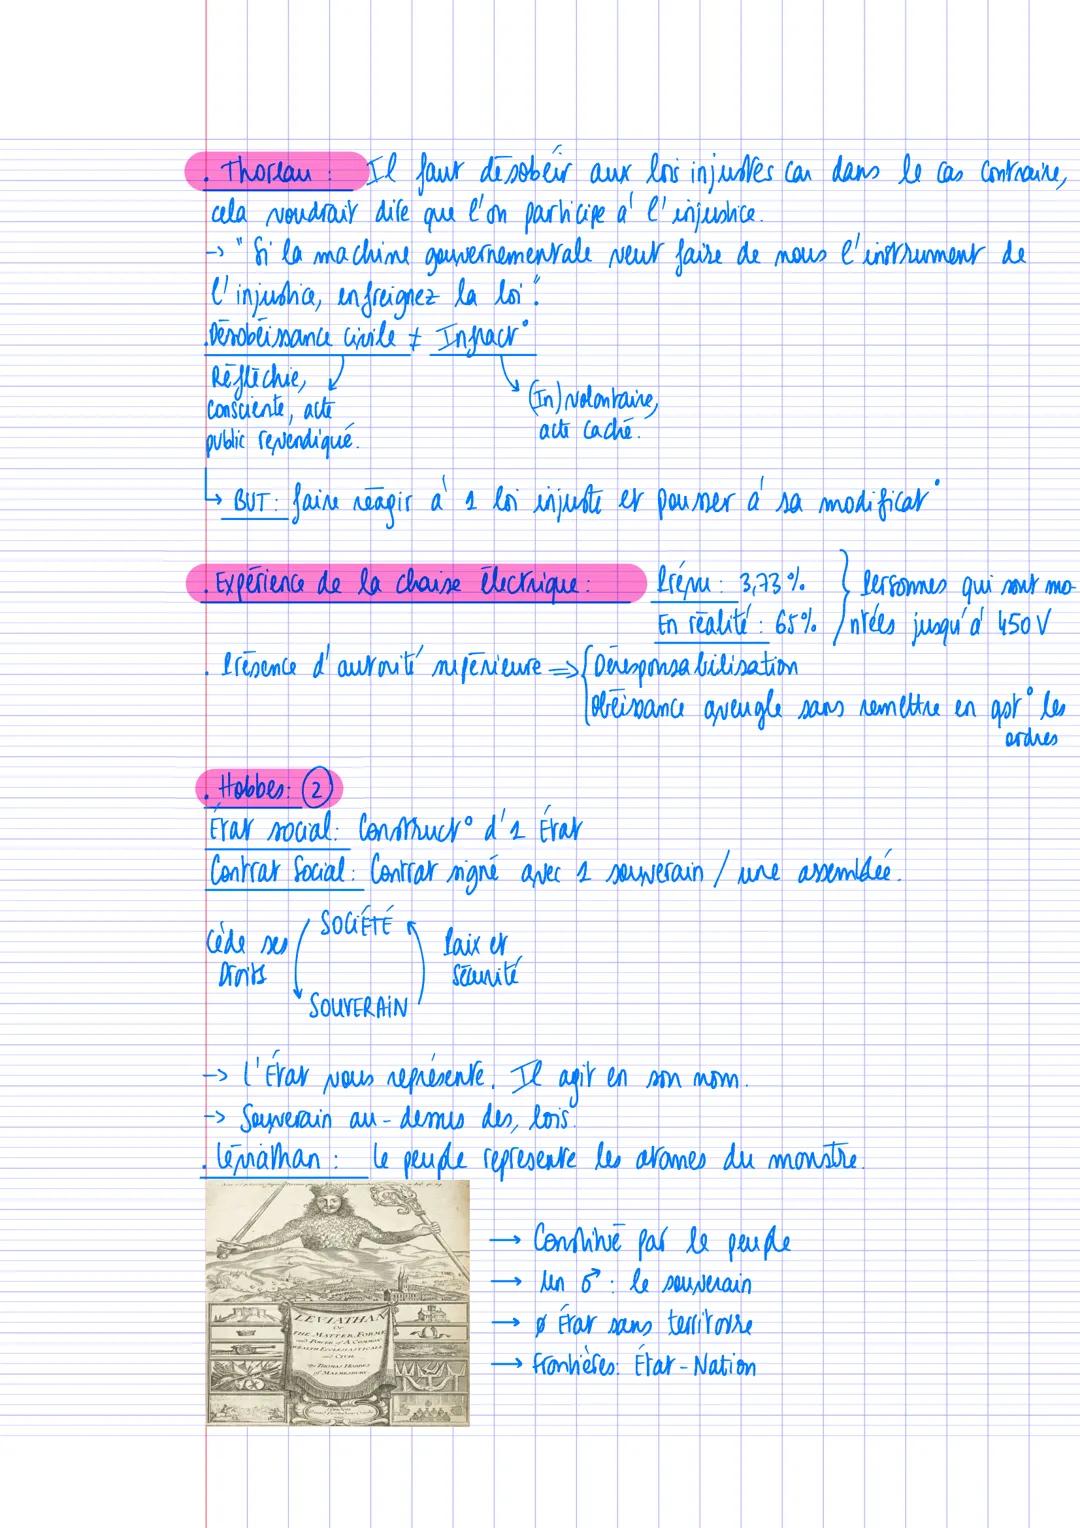 . Thoreau : Il faut désobéir aux lois injustes car dans le cas contraire,
cela voudrait dire que l'on participe à l'injustice.
-> "Si la machine gouvernementale veut faire de nous l'instrument de
l'injustice, enfreignez la loi".
.Désobéissance civile ≠ Infract°
Réfléchie,
consciente, acte
public revendiqué.
(In)volontaire,
acte caché.
↳ BUT : faire réagir à 1 loi injuste et pousser à sa modificat°
. Expérience de la chaise électrique : Prévu : 3,73% } Personnes qui sont mo-
En réalité : 65% ntées jusqu'à 450 V
. Présence d'autorité supérieure => { Déresponsabilisation
obéissance aveugle sans remettre en qst° les
ordres
. Hobbes: (2)
État social: Construct° d'1 État
Contrat Social : Contrat signé avec 1 souverain / une assemblée.
SOCIÉTÉ
Cède ses
Droits
Paix et
sécurité
SOUVERAIN
-> l'État nous représente. Il agit en son nom.
-> Souverain au-dessus des lois.
. Léviathan : le peuple représente les atomes du monstre.
→ Constitué par le peuple
→ Un ♂ : le souverain
→ ø État sans territoire
→ Frontières: État-Nation
LEVIATHAN
Or
THE MATTER, FORME
and POWER of A COMMON
WEALTH ECCLESIASTICALL
and CIVIL
By THOMAS HOBBES
of MALMESBURY